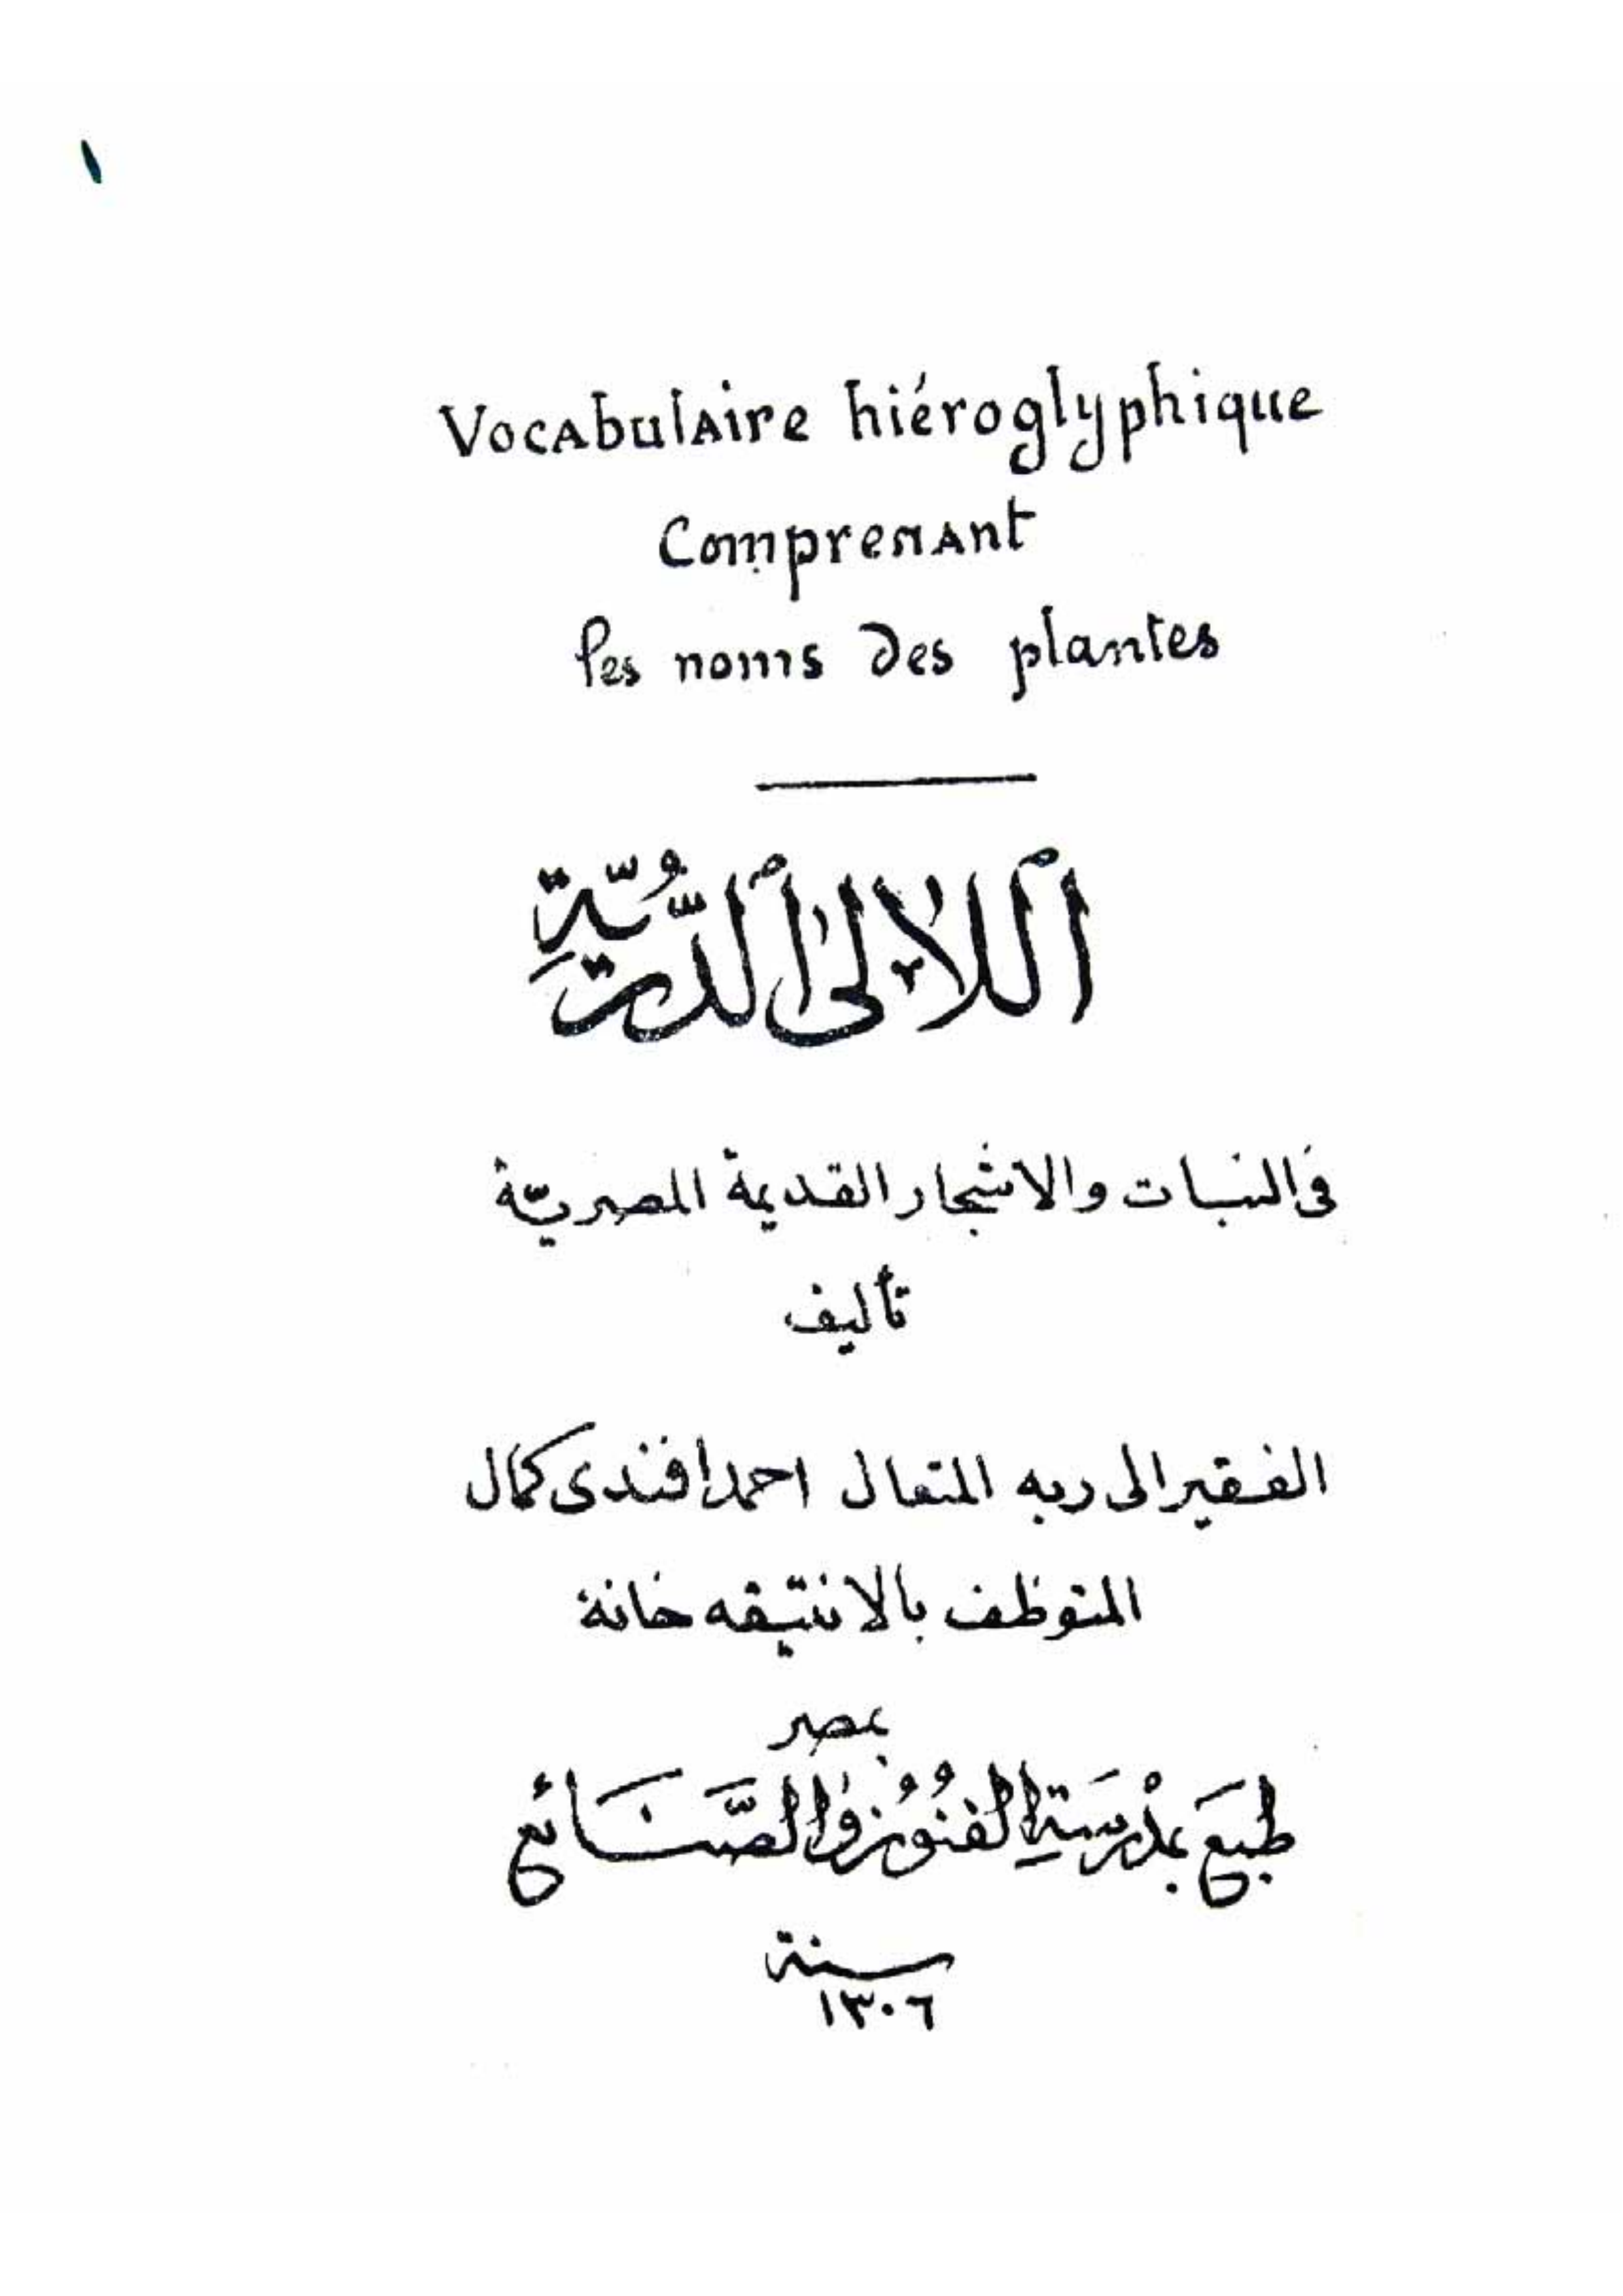 ١
Vocabulaire hiéroglyphique
Comprenant
les noms des plantes
اللالئ الدُّرِّيَّةِ
فى النبات والاشجار القديمة المصريّة
تأليف
الفقير الى ربه المتعال احمد افندى كمال
المتوظف بالانتيقه خانة
بمصر
طبِعَ بمَدْرَسَةِ الفُنُونِ والصَّنَائع
سنة
١٣٠٦